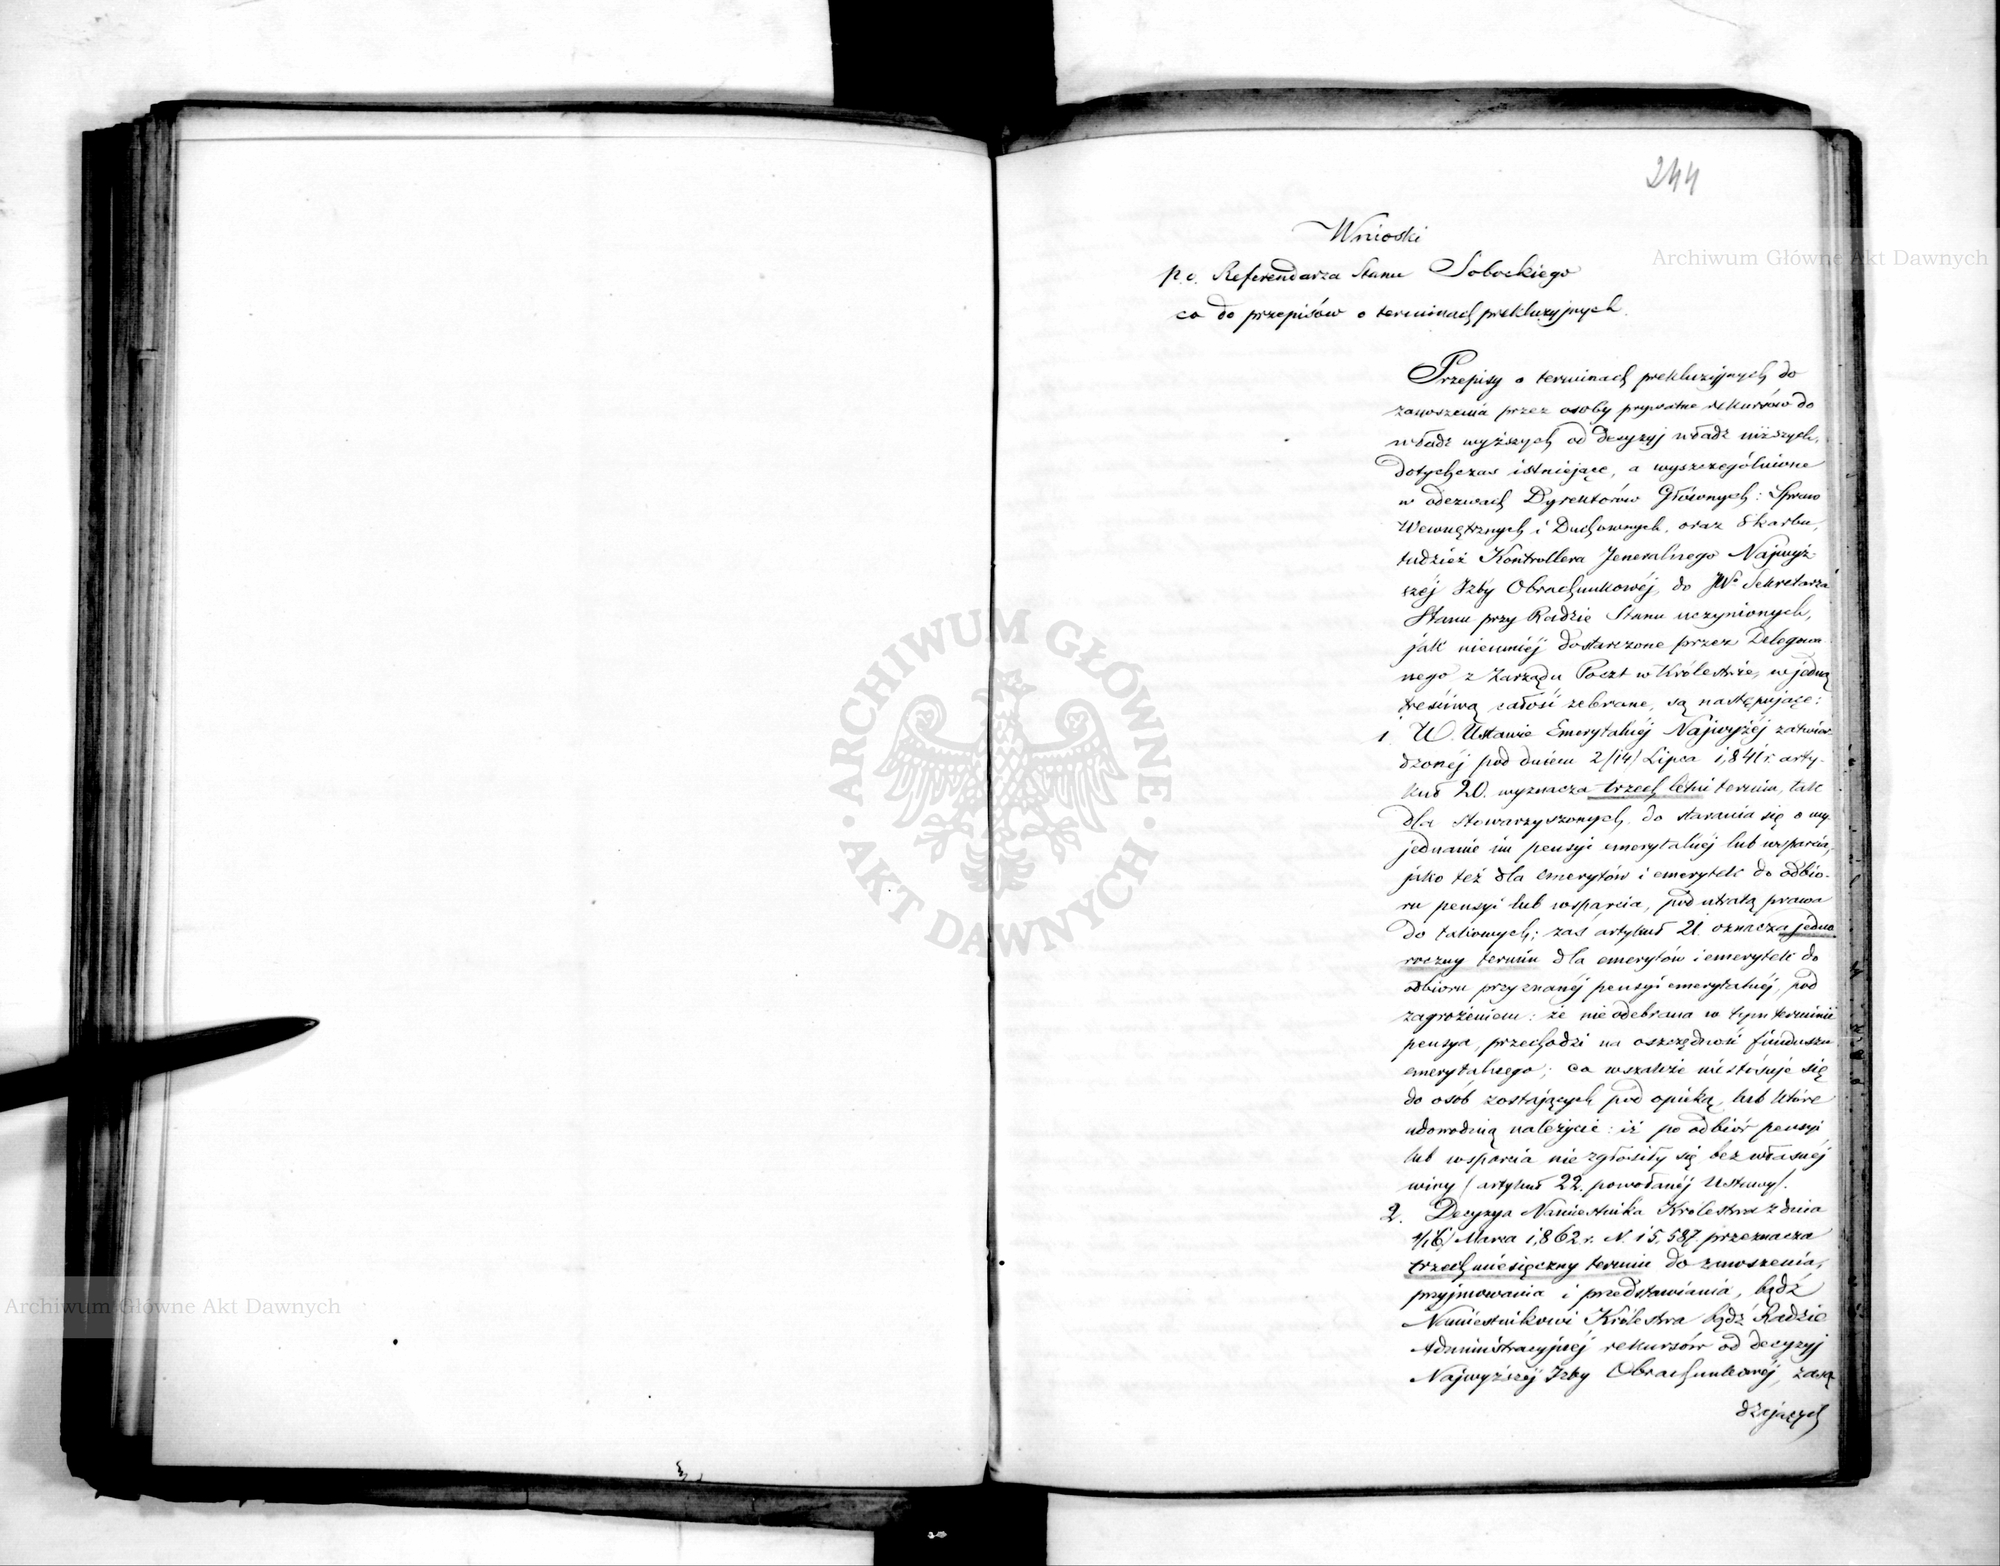 244
Wnioski
p. o. Referendarza Stanu Sobockiego
co do przepisów o terminach prekluzyjnych.
Przepisy o terminach prekluzyjnych do
zanoszenia przez osoby prywatne rekursów do
władz wyższych od decyzyj władz niższych,
dotychczas istniejące, a wyszczególnione
w odezwach Dyrektorów Głównych: Spraw
Wewnętrznych i Duchownych, oraz Skarbu,
tudzież Kontrollera Jeneralnego Najwyż-
széj Izby Obrachunkowéj, do JWo Sekretarza
Stanu przy Radzie Stanu uczynionych,
jak niemniéj dostarczone przez Delegowa-
nego z Zarządu Poczt w Królestwie, w jedną
treściwą całość zebrane, są następujące:
1. W Ustawie Emerytalnéj Najwyżéj zatwier-
dzonéj pod dniem 2/14/ Lipca 1,841 r. arty-
kuł 20. wyznacza trzech letni termin, tak
dla stowarzyszonych do starania się o wy-
jednanie im pensyi emerytalnéj lub wsparcia,
jako też dla emerytów i emerytek do odbio-
ru pensyi lub wsparcia, pod utratą prawa
do takowych; zaś artykuł 21. oznacza jedno-
roczny termin dla emerytów i emerytek do
odbioru przyznanéj pensyi emerytalnéj, pod
zagrożeniem: że nieodebrana w tym terminie
pensya, przechodzi na oszczędność funduszu
emerytalnego; co wszakże nie stósuje się
do osób zostających pod opieką, lub które
udowodnią należycie: iż po odbiór pensyi
lub wsparcia nie zgłosiły się bez własnéj
winy (artykuł 22. powołanéj Ustawy).
2. Decyzya Namiestnika Królestwa z dnia
4/16/ Marca 1,862 r. N. 15,587. przeznacza
trzechmiesięczny termin do zanoszenia,
przyjmowania i przedstawiania, bądź
Namiestnikowi Królestwa bądź Radzie
Administracyjnéj rekursów od decyzyj
Najwyższéj Izby Obrachunkowéj, zasą-
dzających
Archiwum Główne Akt Dawnych
ARCHIWUM GŁÓWNE
AKT DAWNYCH
Archiwum Główne Akt Dawnych